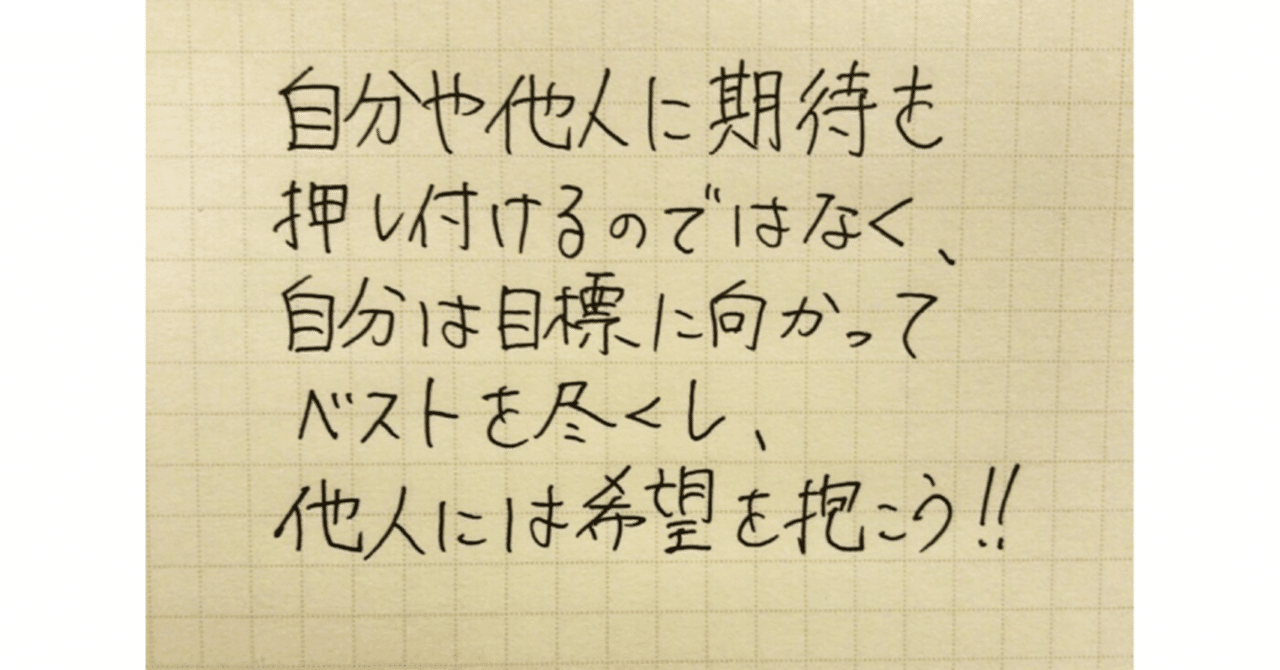 自分や他人に期待を
押し付けるのではなく、
自分は目標に向かって
ベストを尽くし、
他人には希望を抱こう!!